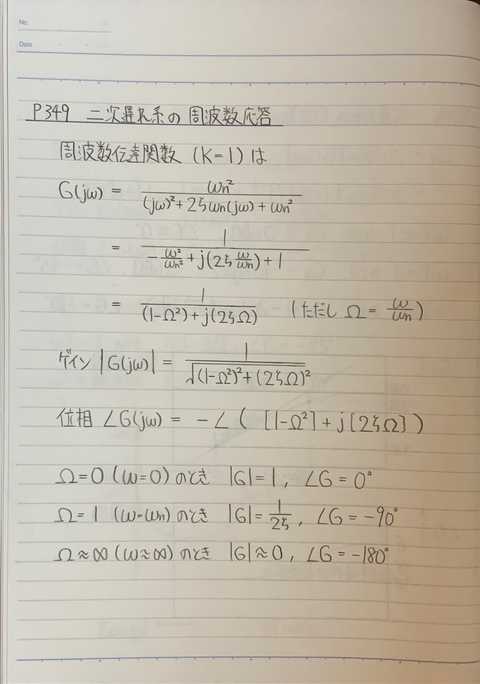 No.
Date
P349 二次遅れ系の周波数応答
周波数伝達関数 (K=1) は
G(jω) = ωn² / ((jω)²+2ζωn(jω)+ωn²)
= 1 / (-ω²/ωn² + j(2ζ ω/ωn) + 1)
= 1 / ((1-Ω²)+j(2ζΩ)) (ただし Ω = ω/ωn)
ゲイン |G(jω)| = 1 / √((1-Ω²)²+(2ζΩ)²)
位相 ∠G(jω) = -∠( [1-Ω²]+j[2ζΩ] )
Ω=0 (ω=0) のとき |G|=1, ∠G=0°
Ω=1 (ω=ωn) のとき |G|=1/2ζ, ∠G=-90°
Ω≈∞ (ω≈∞) のとき |G|≈0, ∠G=-180°